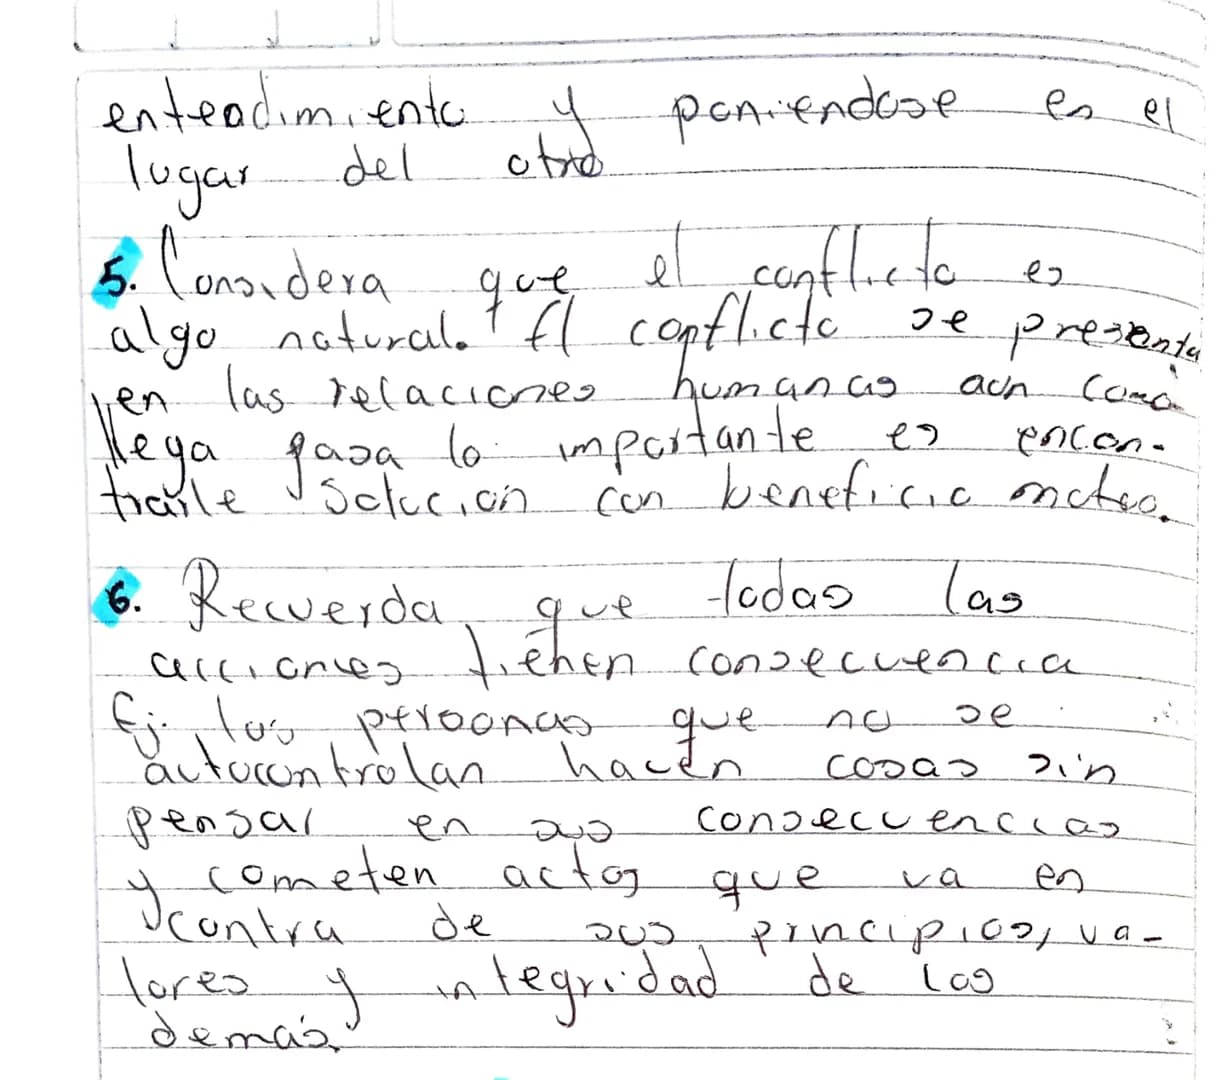 entendimiento y poniendose en el
lugar del otro
5. Considera que el conflicto es
algo natural. El conflicto se presenta
en las relaciones humanas aun como
llega pasa lo importante es encon-
trarle solución con beneficio mutuo.
6. Recuerda que todas las
acciones tienen consecuencia
Ej. las personas que no se
autocontrolan hacen cosas sin
pensar en sus consecuencias
y cometen actos que va en
contra de sus principios, va-
lores y integridad de los
demás.